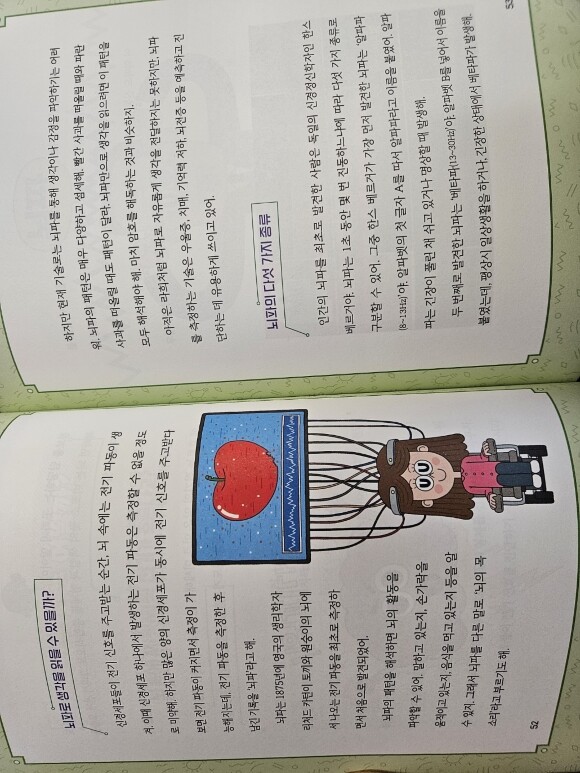 뇌파로 생각을 읽을 수 있을까?
신경세포들이 전기 신호를 주고받는 순간, 뇌 속에는 전기 파동이 생
겨. 이때 신경세포 하나에서 발생하는 전기 파동은 측정할 수 없을 정도
로 미약해. 하지만 많은 양의 신경세포가 동시에 전기 신호를 주고받다
보면 전기 파동이 커지면서 측정이 가
능해지는데, 전기 파동을 측정한 후
남긴 기록을 '뇌파'라고 해.
뇌파는 1875년에 영국의 생리학자
리처드 카턴이 토끼와 원숭이의 뇌에
서 나오는 전기 파동을 최초로 측정하
면서 처음으로 발견되었어.
뇌파의 패턴을 해석하면 뇌의 활동을
파악할 수 있어. 말하고 있는지, 손가락을
움직이고 있는지, 음식을 먹고 있는지 등을 알
수 있지. 그래서 뇌파를 다른 말로 '뇌의 목
소리'라고 부르기도 해.
52
하지만 현재 기술로는 뇌파를 통해 생각이나 감정을 파악하기는 어려
워. 뇌파의 패턴은 매우 다양하고 섬세해. 빨간 사과를 떠올릴 때와 파란
사과를 떠올릴 때도 패턴이 달라. 뇌파만으로 생각을 읽으려면 이 패턴을
모두 해석해야 해. 마치 암호를 해독하는 것과 비슷하지.
아직은 라희처럼 뇌파로 자유롭게 생각을 전달하지는 못하지만, 뇌파
를 측정하는 기술은 우울증, 치매, 기억력 저하, 뇌전증 등을 예측하고 진
단하는 데 유용하게 쓰이고 있어.
뇌파의 다섯 가지 종류
인간의 뇌파를 최초로 발견한 사람은 독일의 신경정신학자인 한스
베르거야. 뇌파는 1초 동안 몇 번 진동하느냐에 따라 다섯 가지 종류로
구분할 수 있어. 그중 한스 베르거가 가장 먼저 발견한 뇌파는 '알파파
(8~13Hz)'야. 알파벳의 첫 글자 A를 따서 알파파라고 이름을 붙였어. 알파
파는 긴장이 풀린 채 쉬고 있거나 명상할 때 발생해.
두 번째로 발견한 뇌파는 '베타파(13~30Hz)'야. 알파벳 B를 넣어서 이름을
붙였는데, 평상시 일상생활을 하거나, 긴장한 상태에서 베타파가 발생해.
53